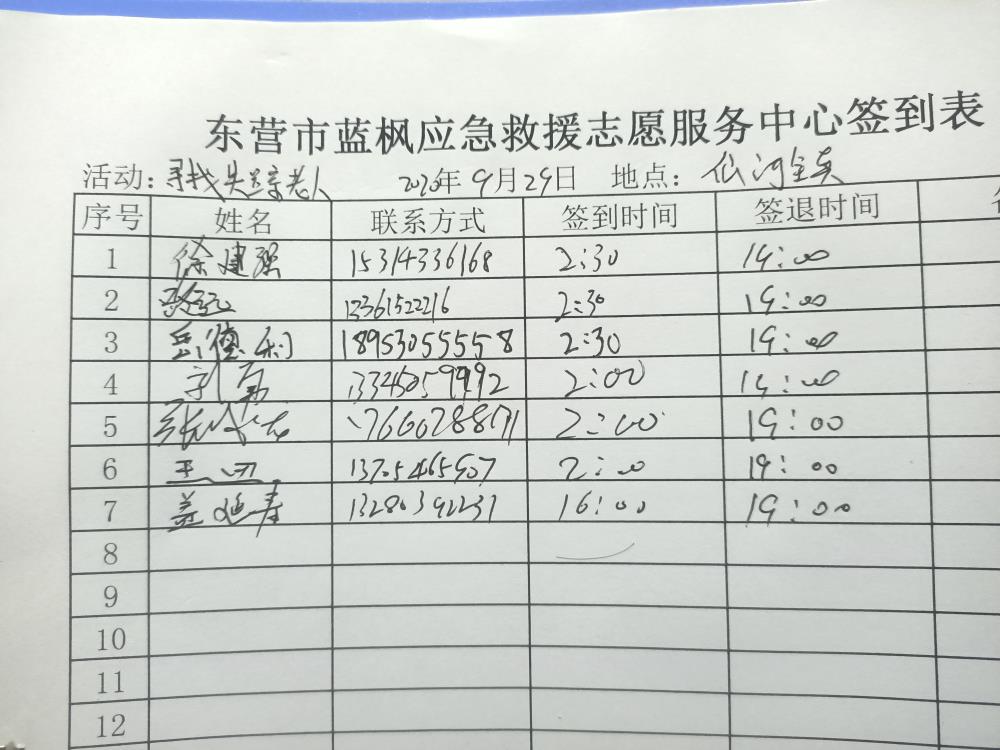 东营市蓝枫应急救援志愿服务中心签到表
活动：寻找失踪老人 2020年9月29日 地点：仙河
序号 姓名 联系方式 签到时间 签退时间
1 徐建强 15314336168 2:30 19:00
2 13361522216 2:30 19:00
3 岳德利 18953055558 2:30 19:00
4 13345059992 2:00 19:00
5 2:00 19:00
6 13705465907 2:00 19:00
7 盖延春 13280392231 16:00 19:00
8
9
10
11
12